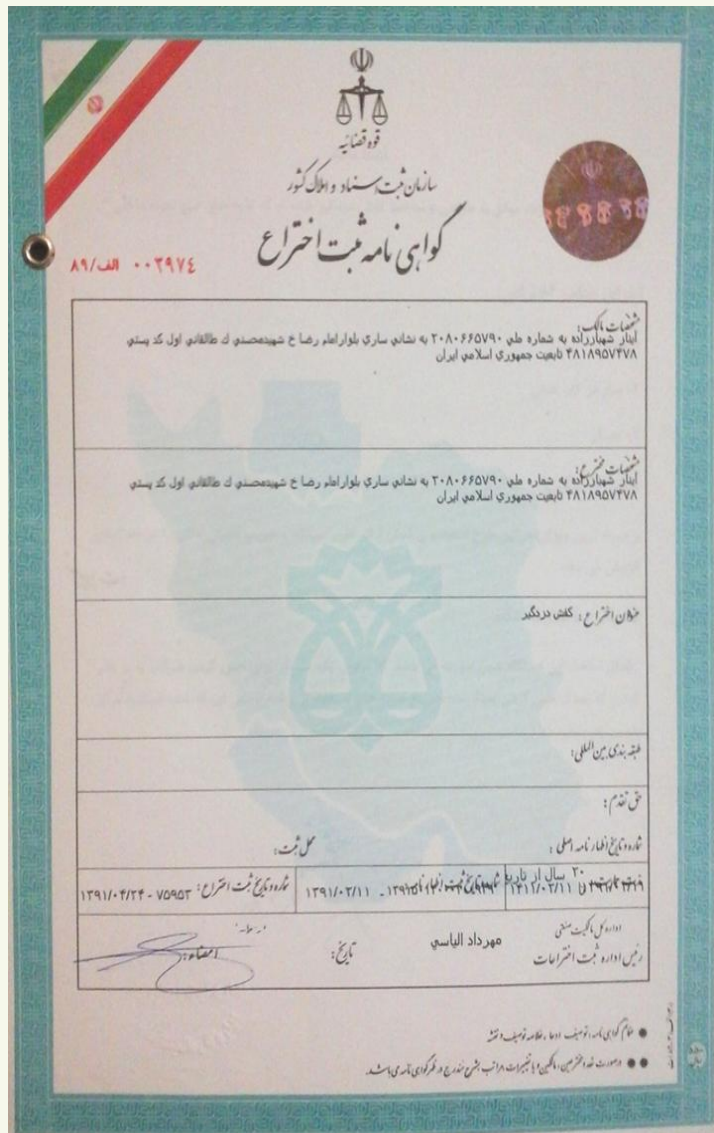 قوه قضائیه
سازمان ثبت اسناد و املاک کشور
گواهی نامه ثبت اختراع
۰۰۳۹۷٤ الف/۸۹
مشخصات مالک:
ایثار شهبازراده به شماره ملي ۲۰۸۰۶۶۵۷۹۰ به نشاني ساري بلوارامام رضا خ شهیدمحسني ك طالقاني اول کد پستي
۴۸۱۸۹۵۷۴۷۸ تابعیت جمهوري اسلامي ایران
مشخصات مخترع:
ایثار شهبازراده به شماره ملي ۲۰۸۰۶۶۵۷۹۰ به نشاني ساري بلوارامام رضا خ شهیدمحسني ك طالقاني اول کد پستي
۴۸۱۸۹۵۷۴۷۸ تابعیت جمهوري اسلامي ایران
عنوان اختراع: کفش دزدگیر
طبقه بندی بین المللی:
حق تقدم:
شماره و تاریخ اظهارنامه اصلی: محل ثبت:
۲۰ سال از تاریخ
شماره و تاریخ ثبت اظهارنامه: ۱۳۹۱/۰۳/۱۱ شماره و تاریخ ثبت اختراع: ۷۵۹۵۳ - ۱۳۹۱/۰۴/۲۴
اداره کل مالکیت صنعتی
رئیس اداره ثبت اختراعات مهرداد الیاسي تاریخ: امضاء:
● ضمائم گواهی نامه: توصیف، ادعا، خلاصه توصیف و نقشه
●● درصورت تعدد مخترعین، مالکین و یا تغییرات، مراتب بشرح مندرج در ظهر گواهی نامه می باشد.